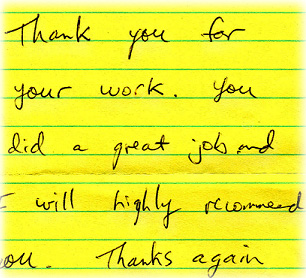 Thank you for
your work. You
did a great job and
I will highly recommend
you. Thanks again